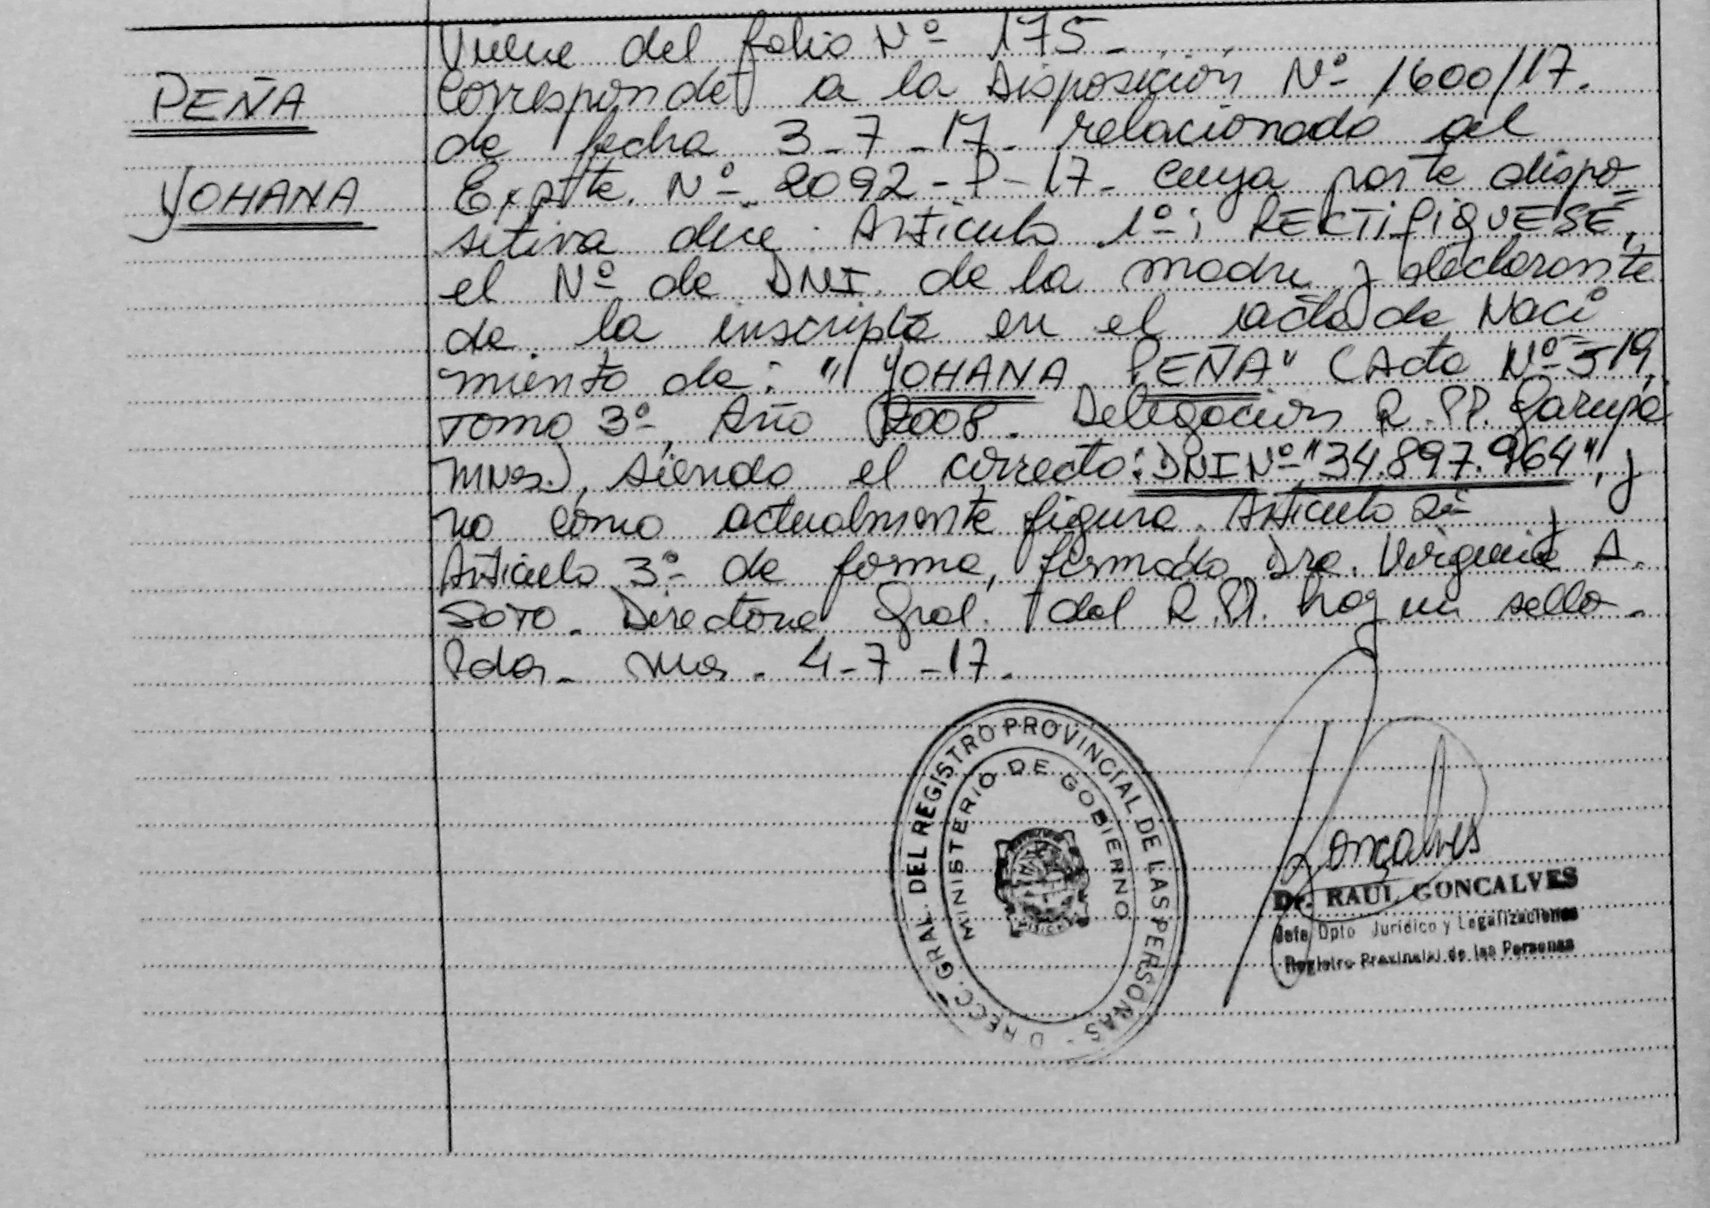 Viene del folio Nº 175-
PEÑA
Corresponde a la Disposición Nº 1600/17.
de fecha 3-7-17- relacionado al
YOHANA
Expte. Nº 2092-P-17- cuya parte dispo=
sitiva dice: Artículo 1º; RECTIFIQUESE,
el Nº de DNI. de la madre y declarante
de la inscripta en el acta de Naci
miento de: "YOHANA PEÑA" (Acta Nº 519,
Tomo 3º, Año 2008. Delegación R.PP. Garupá
Mnes), siendo el correcto: DNI Nº "34.897.964", y
no como actualmente figura. Artículo 2º y
Artículo 3º de forma, firmado Dra. Virginia A.
SOTO. Directora Gral. del R.PP. hay un sello.
Pdas. Mnes. 4-7-17.
DIRECC. GRAL. DEL REGISTRO PROVINCIAL DE LAS PERSONAS -
MINISTERIO DE GOBIERNO
Gonçalves
Dr. RAUL GONCALVES
Jefe Dpto Jurídico y Legalizaciones
Registro Provincial de las Personas